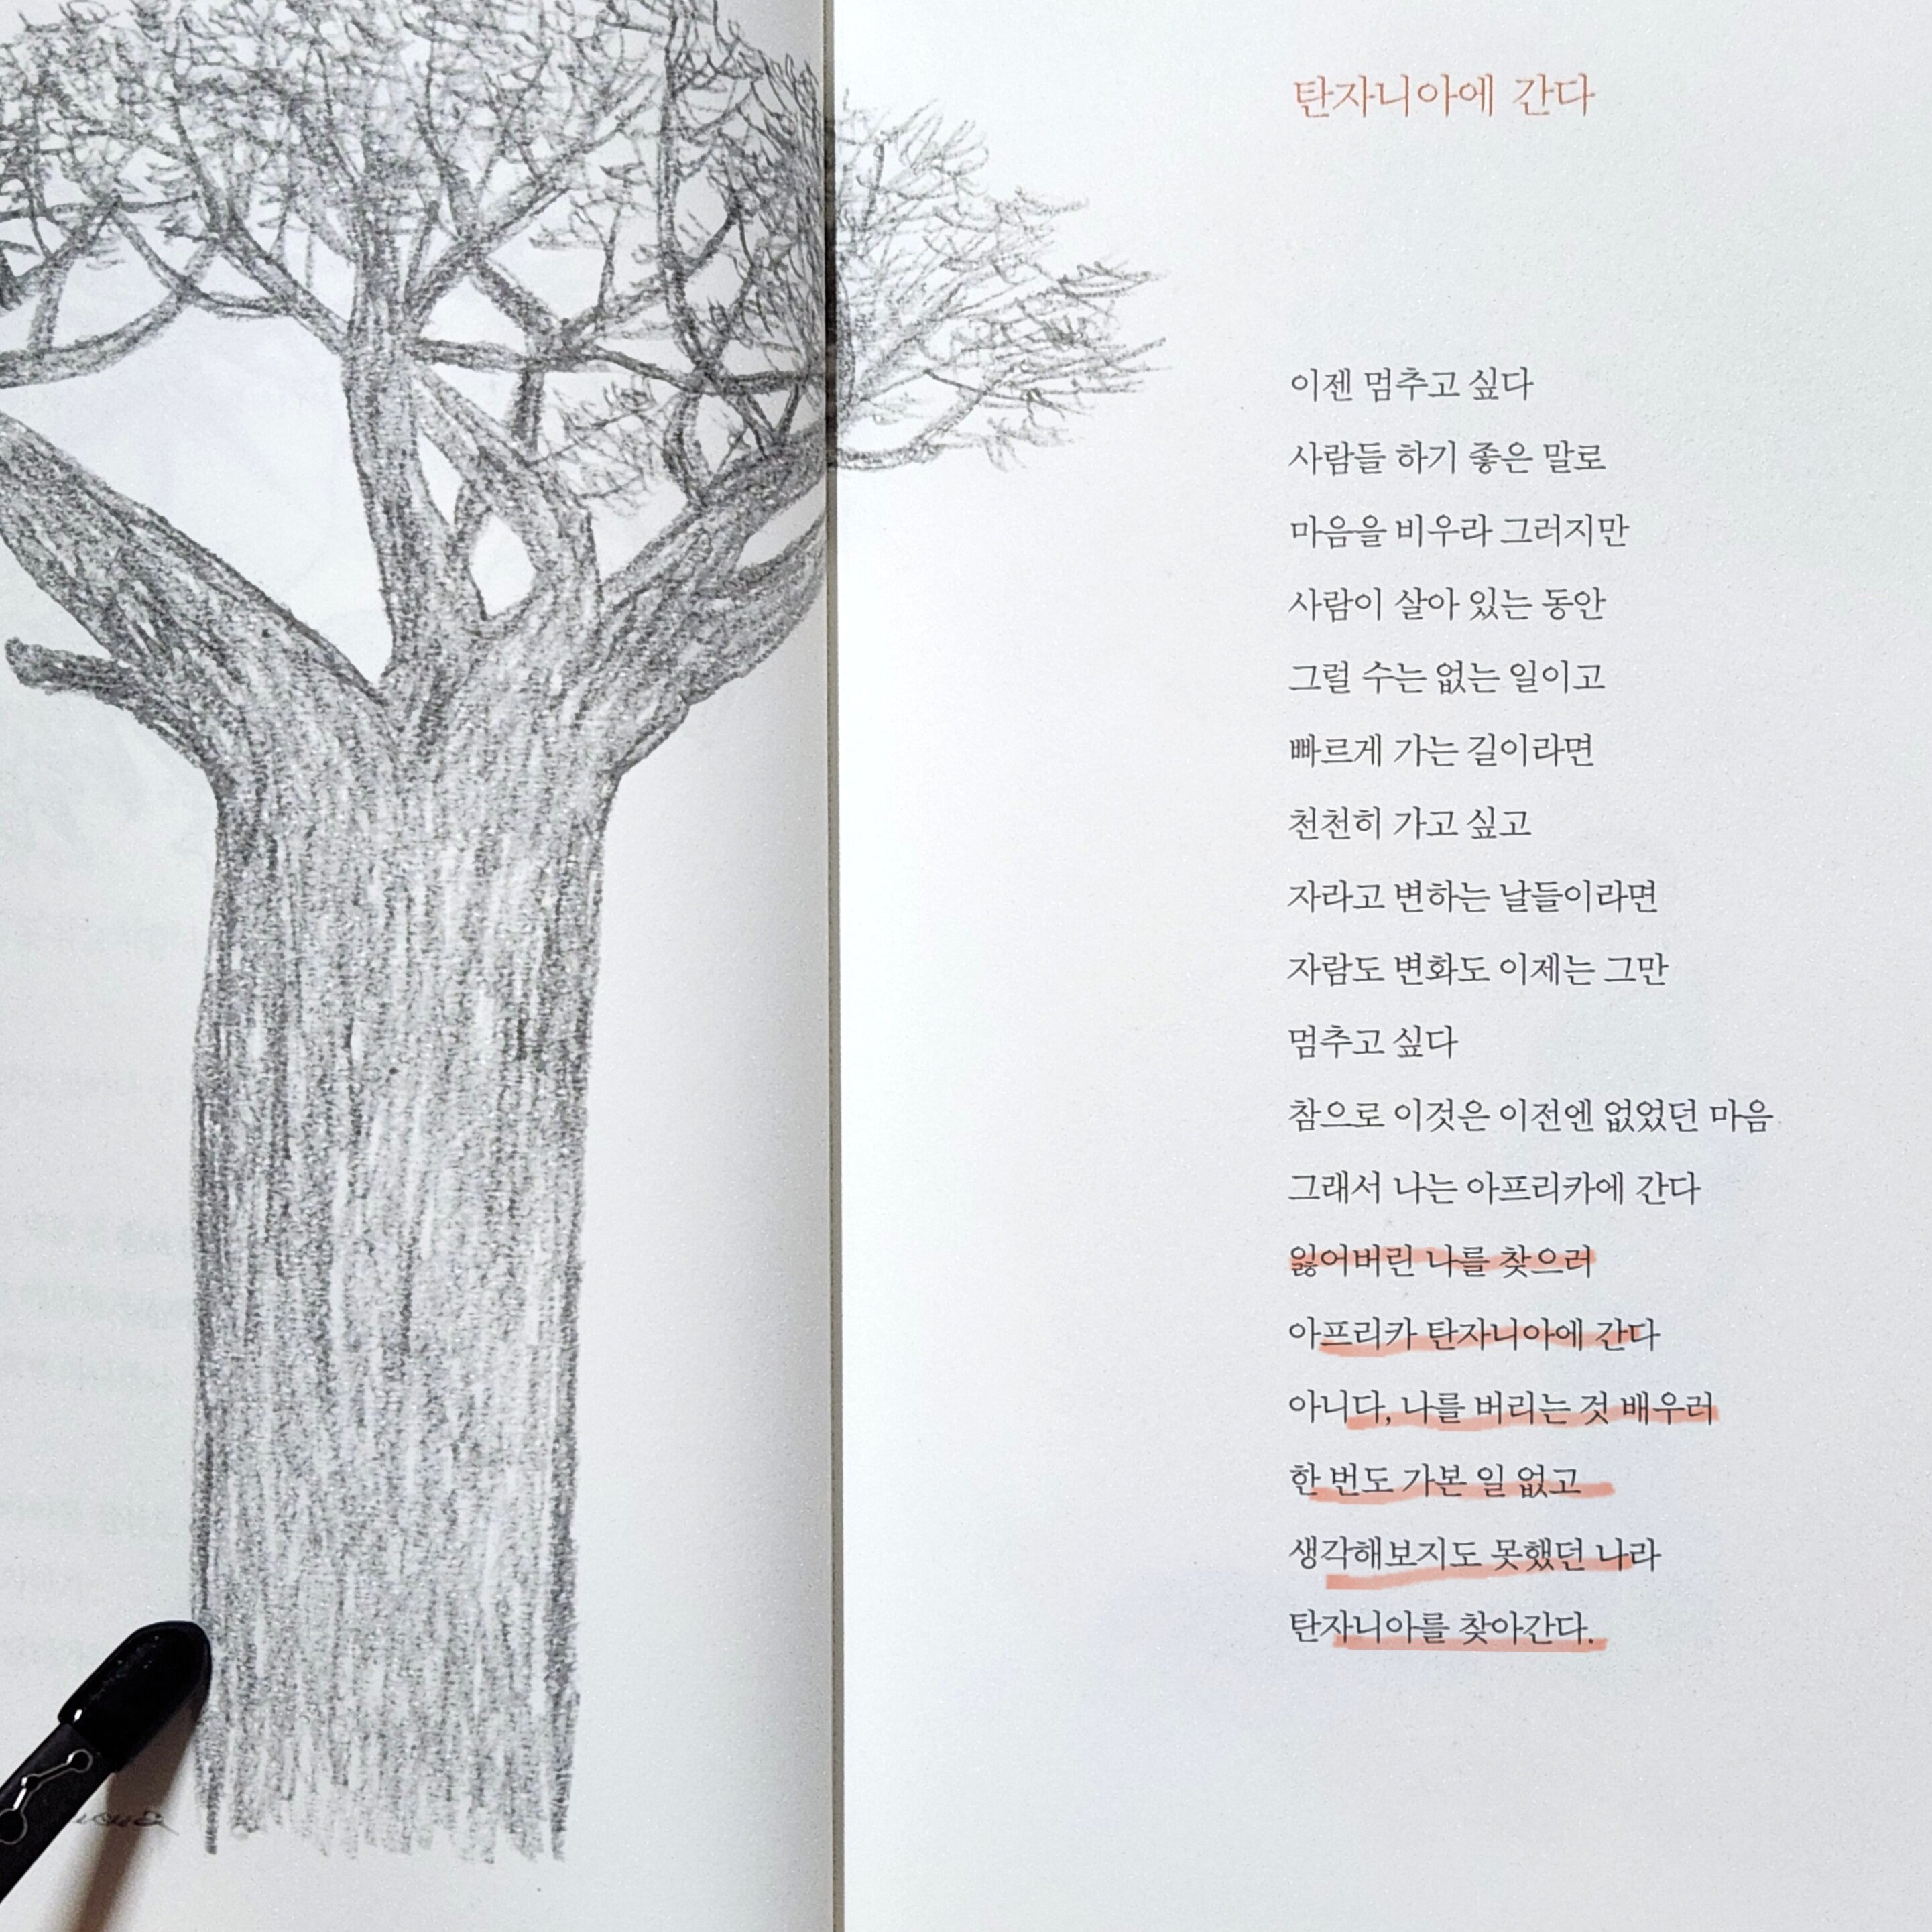 탄자니아에 간다
이젠 멈추고 싶다
사람들 하기 좋은 말로
마음을 비우라 그러지만
사람이 살아 있는 동안
그럴 수는 없는 일이고
빠르게 가는 길이라면
천천히 가고 싶고
자라고 변하는 날들이라면
자람도 변화도 이제는 그만
멈추고 싶다
참으로 이것은 이전엔 없었던 마음
그래서 나는 아프리카에 간다
잃어버린 나를 찾으러
아프리카 탄자니아에 간다
아니다, 나를 버리는 것 배우러
한 번도 가본 일 없고
생각해보지도 못했던 나라
탄자니아를 찾아간다.